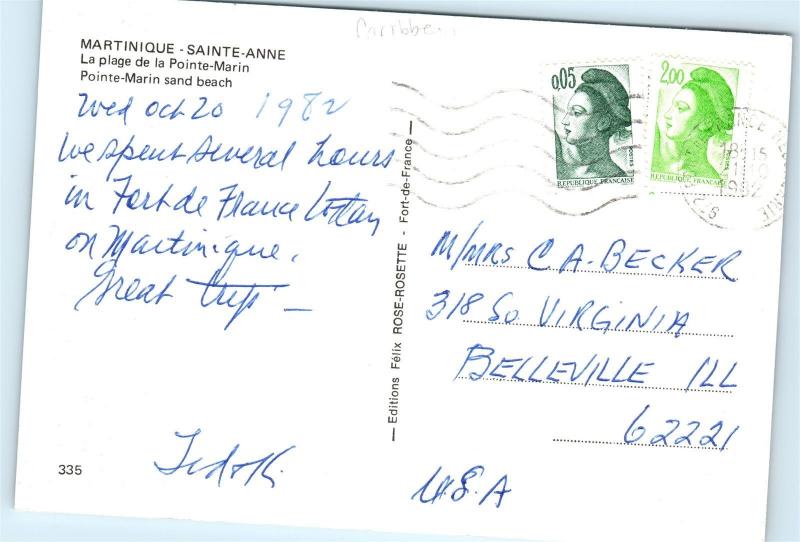 Caribbean
MARTINIQUE - SAINTE-ANNE
La plage de la Pointe-Marin
Pointe-Marin sand beach
Wed Oct 20 1982
We spent several hours
in Fort de France
on Martinique.
Great trip —
335
— Editions Félix ROSE-ROSETTE - Fort-de-France —
0,05
POSTES
REPUBLIQUE FRANÇAISE
2,00
REPUBLIQUE FRANÇAISE
18 H 15
1982
M/MRS C A. BECKER
318 SO VIRGINIA
BELLEVILLE ILL
62221
U.S.A